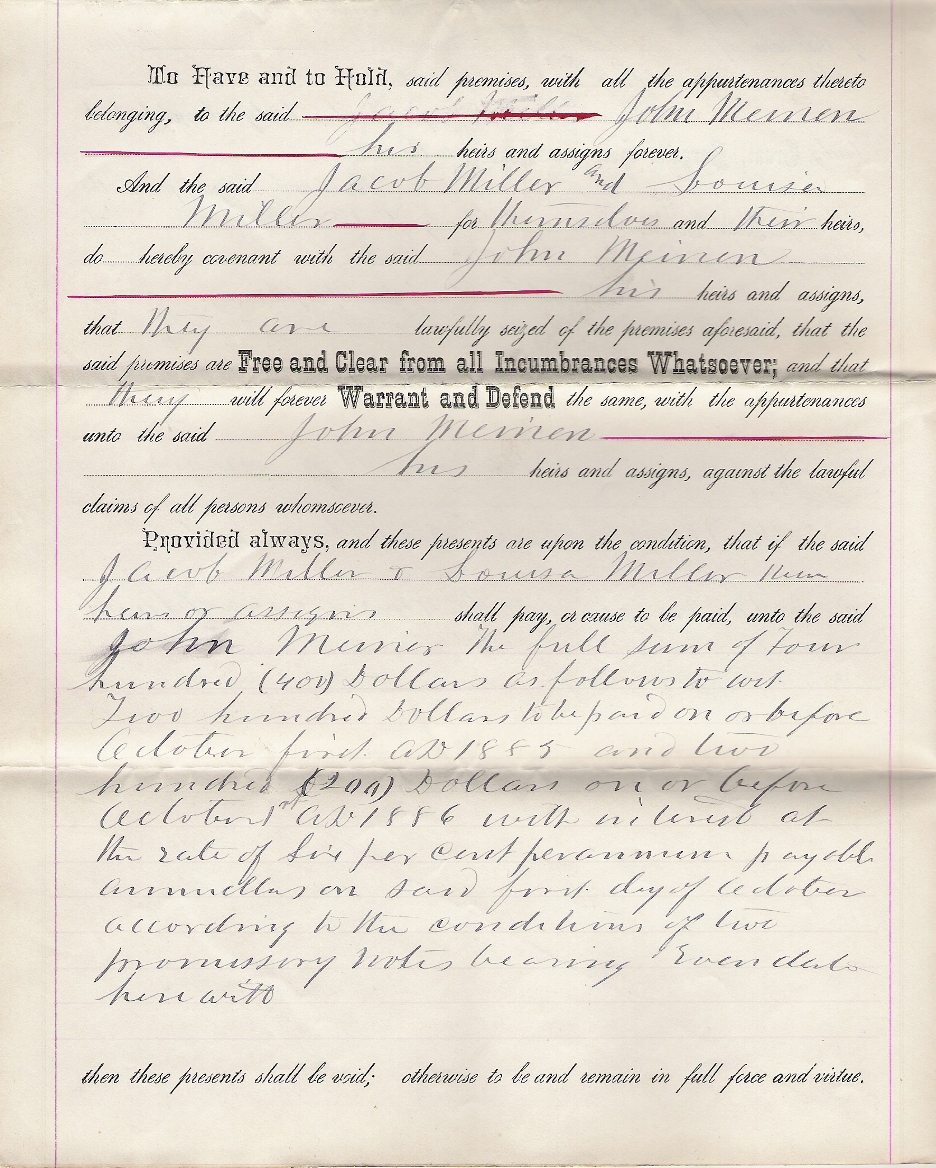 To Have and to Hold, said premises, with all the appurtenances thereto
belonging, to the said Jacob Miller John Meinen
his heirs and assigns forever.
And the said Jacob Miller and Louisa
Miller for themselves and their heirs,
do hereby covenant with the said John Meinen
his heirs and assigns,
that they are lawfully seized of the premises aforesaid, that the
said premises are Free and Clear from all Incumbrances Whatsoever; and that
they will forever Warrant and Defend the same, with the appurtenances
unto the said John Meinen
his heirs and assigns, against the lawful
claims of all persons whomsoever.
Provided always, and these presents are upon the condition, that if the said
Jacob Miller & Louisa Miller their
heirs or assigns shall pay, or cause to be paid, unto the said
John Meinen The full sum of Four
hundred (400) Dollars as follows to wit
Two hundred Dollars to be paid on or before
October first AD 1885 and two
hundred (200) Dollars on or before
October 1st AD 1886 with interest at
the rate of Six per cent per annum payable
annually on said first day of October
according to the conditions of two
promissory notes bearing Even date
here with
then these presents shall be void; otherwise to be and remain in full force and virtue.